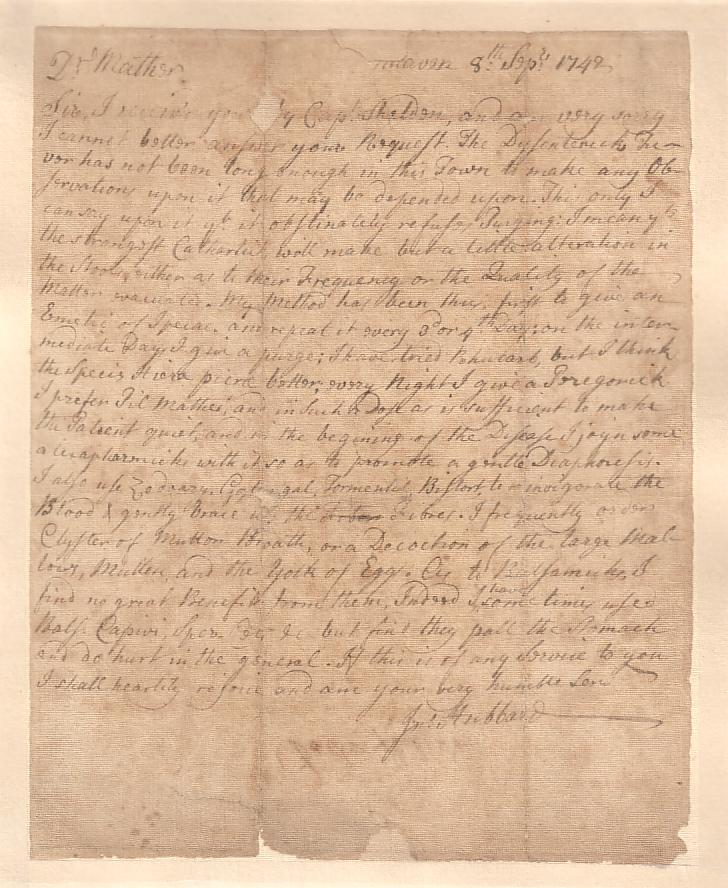 Dr Mather. 8th Sepr 1742
Sir, I receiv'd you by Capt. Shelden, and am very sorry
I cannot better answer your Request. The Dysenterick Fe-
ver has not been long enough in this Town to make any Ob-
servations upon it that may be depended upon. This only I
can say upon it yt it obstinately refuses Purging: I mean yt
the strongest Catharticks will make but a little alteration in
the Stools, either as to their Frequency or the Quality of the
Matter evacuated. My Method has been this, first to give an
Emetic of Ipecac. and repeat it every 3d or 4th Day; on the inter-
mediate Days I give a purge; I have tried Rhubarb, but I think
the Species Hiera picra better; every Night I give a Paregorick
I prefer Pil Mathei, and in such a Dose as is sufficient to make
the Patient quiet, and in the begining of the Disease I joyn some
alexapharmicks with it so as to promote a gentle Diaphoresis.
I also use Zedoary, Tormentil, Bistort, to invigorate the
Blood & gently brace up the Fibres. I frequently order
Clyster of Mutton Broath, or a Decoction of the large Mal-
lows, Mullen, and the Yolk of Eggs. As to Balsamicks, I
find no great Benefit from them, Indeed I have some times used
Bals. Capivi, Sper. Ceti &c but find they pall the Stomach
and do hurt in the general. If this is of any Service to you
I shall heartily rejoice and am your very humble Serv
Jno Hubbard